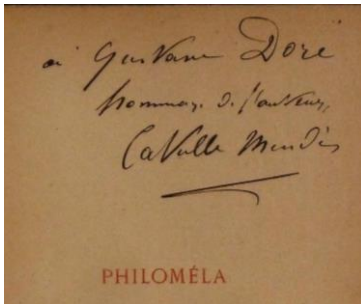 à Gustave Doré
hommage de l'auteur,
Catulle Mendès
PHILOMÉLA